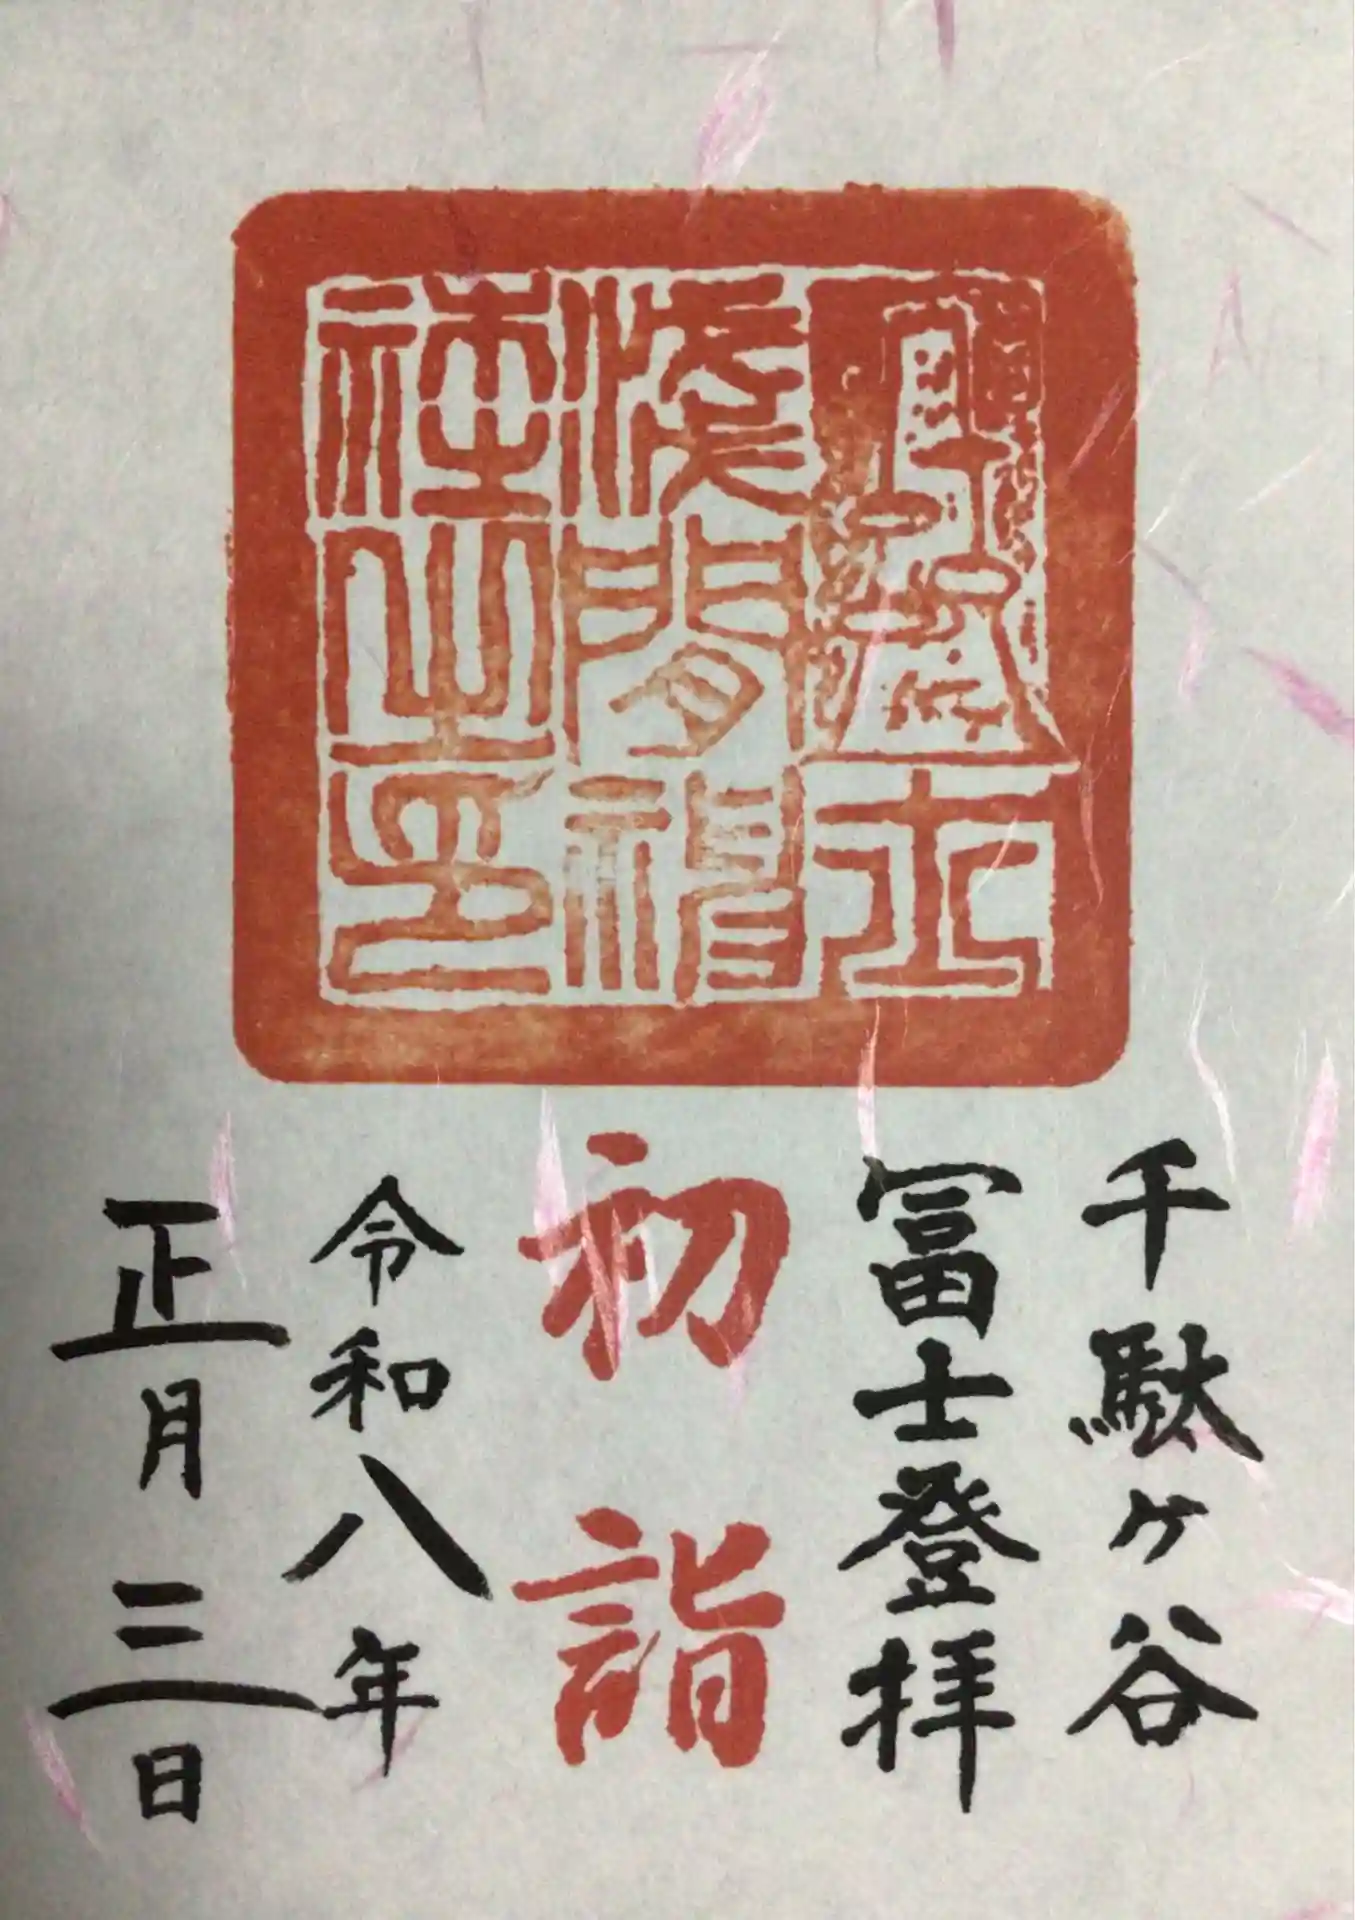 士
淺間神
社之印
千駄ヶ谷
冨士登拝
初詣
令和八年
正月三日